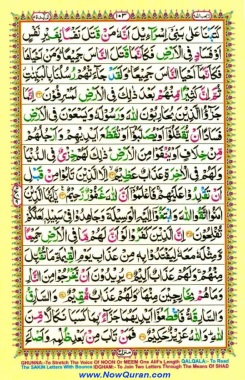 ١٠٣
كَتَبْنَا عَلٰى بَنِيْٓ اِسْرَآءِيْلَ اَنَّهٗ مَنْ قَتَلَ نَفْسًۢا بِغَيْرِ نَفْسٍ
اَوْ فَسَادٍ فِى الْاَرْضِ فَكَاَنَّمَا قَتَلَ النَّاسَ جَمِيْعًا وَمَنْ اَحْيَاهَا
فَكَاَنَّمَآ اَحْيَا النَّاسَ جَمِيْعًا وَلَقَدْ جَآءَتْهُمْ رُسُلُنَا بِالْبَيِّنٰتِ
ثُمَّ اِنَّ كَثِيْرًا مِّنْهُمْ بَعْدَ ذٰلِكَ فِى الْاَرْضِ لَمُسْرِفُوْنَ اِنَّمَا
جَزٰٓؤُا الَّذِيْنَ يُحَارِبُوْنَ اللّٰهَ وَرَسُوْلَهٗ وَيَسْعَوْنَ فِى الْاَرْضِ
فَسَادًا اَنْ يُّقَتَّلُوْٓا اَوْ يُصَلَّبُوْٓا اَوْ تُقَطَّعَ اَيْدِيْهِمْ وَاَرْجُلُهُمْ
مِّنْ خِلَافٍ اَوْ يُنْفَوْا مِنَ الْاَرْضِ ذٰلِكَ لَهُمْ خِزْيٌ فِى الدُّنْيَا
وَلَهُمْ فِى الْاٰخِرَةِ عَذَابٌ عَظِيْمٌ اِلَّا الَّذِيْنَ تَابُوْا مِنْ قَبْلِ
اَنْ تَقْدِرُوْا عَلَيْهِمْ فَاعْلَمُوْٓا اَنَّ اللّٰهَ غَفُوْرٌ رَّحِيْمٌ يٰٓاَيُّهَا الَّذِيْنَ
اٰمَنُوا اتَّقُوا اللّٰهَ وَابْتَغُوْٓا اِلَيْهِ الْوَسِيْلَةَ وَجَاهِدُوْا فِيْ سَبِيْلِهٖ لَعَلَّكُمْ
تُفْلِحُوْنَ اِنَّ الَّذِيْنَ كَفَرُوْا لَوْ اَنَّ لَهُمْ مَّا فِى الْاَرْضِ جَمِيْعًا
وَّمِثْلَهٗ مَعَهٗ لِيَفْتَدُوْا بِهٖ مِنْ عَذَابِ يَوْمِ الْقِيٰمَةِ مَا تُقُبِّلَ مِنْهُمْ
وَلَهُمْ عَذَابٌ اَلِيْمٌ يُرِيْدُوْنَ اَنْ يَّخْرُجُوْا مِنَ النَّارِ
وَمَا هُمْ بِخَارِجِيْنَ مِنْهَا وَلَهُمْ عَذَابٌ مُّقِيْمٌ وَالسَّارِقُ
وَالسَّارِقَةُ فَاقْطَعُوْٓا اَيْدِيَهُمَا جَزَآءًۢ بِمَا كَسَبَا نَكَالًا مِّنَ
اللّٰهِ وَاللّٰهُ عَزِيْزٌ حَكِيْمٌ فَمَنْ تَابَ مِنْۢ بَعْدِ ظُلْمِهٖ وَاَصْلَحَ
GHUNNA:-To Stretch The Voice Of NOON Or MEEM One Alif's Length QALQALA:- To Read
The SAKIN Letters With Bounce IDGHAM:- To Join Two Letters Through The Means Of SHAD
www.NowQuran.com